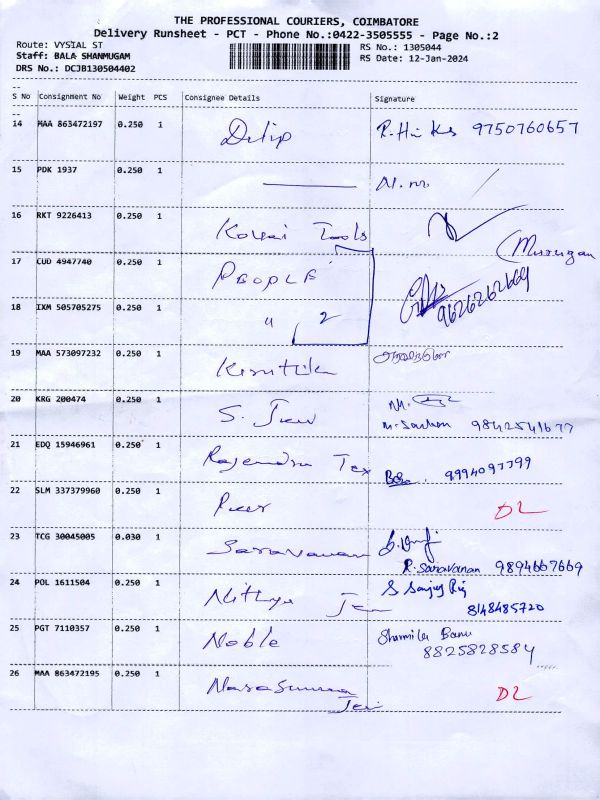 THE PROFESSIONAL COURIERS, COIMBATORE
Delivery Runsheet - PCT - Phone No.:0422-3505555 - Page No.:2
Route: VYSIAL ST
RS No.: 1305044
Staff: BALA SHANMUGAM
RS Date: 12-Jan-2024
DRS No.: DCJB130504402
S No Consignment No Weight PCS Consignee Details Signature
14 MAA 863472197 0.250 1 Dilip 9750760657
15 PDK 1937 0.250 1
16 RKT 9226413 0.250 1 Kovai Tools
Murugan
17 CUD 4947740 0.250 1 PEOPLE
9626262669
18 IXM 505705275 0.250 1 " 2
19 MAA 573097232 0.250 1
20 KRG 200474 0.250 1 S.
9842541677
21 EDQ 15946961 0.250 1 Rajendra Tex 9994097799
22 SLM 337379960 0.250 1 D2
23 TCG 30045005 0.030 1 Saravanan
R. Saravanan 9894667669
24 POL 1611504 0.250 1 Nithya S
8148485720
25 PGT 7110357 0.250 1 Noble Sharmila Banu
8825828584
26 MAA 863472195 0.250 1 D2